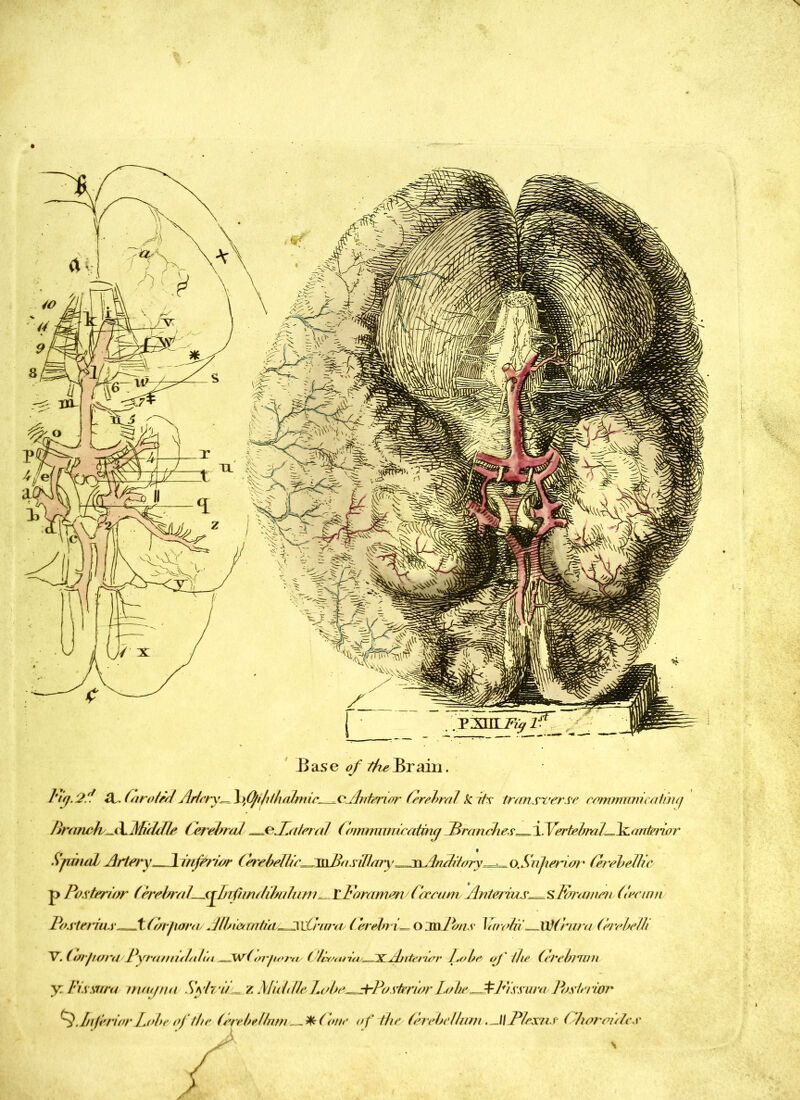 P.XIII Fig 1st
Base of the Brain.
Fig. 2d a. Carotéd Artery_ b, Ophthalmic_ c Anterior Cerebral & its transverse communicating
Branch_ d Middle Cerebral_ e. Lateral Communicating Branches_ i. Vertebral_ k. anterior
Spinal Artery_ l inferior Cerebellic_ m Basillary_ n Auditory_ o. Superior Cerebellic
p Posterior Cerebral_ q Infundibulum_ r Foramen Cœcum Anterius_ s Foramen Cœcum
Posterius_ t Corpora Albicantia_ u Crura Cerebri_ o m Pons Varolii_ w Crura Cerebelli
v. Corpora Pyramidalia_ w Corpora Olivaria_ x Anterior Lobe of the Cerebrum
y. Fissura magna Sylvii_ z Middle Lobe_ + Posterior Lobe_ ‡ Fissura Posterior
Inferior Lobe of the Cerebellum_ * Cone of the Cerebellum._ || Plexus Choroides